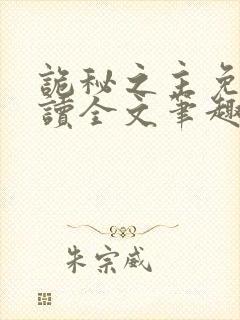 詭秘之主免
讀全文筆趣
朱宗威